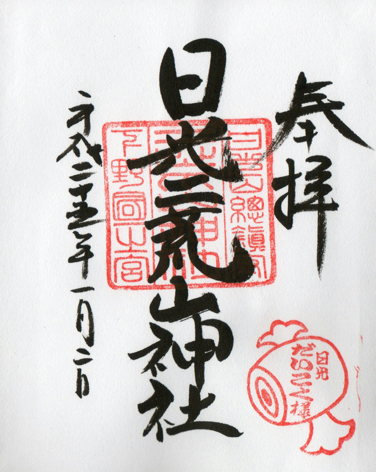 奉拝
日光二荒山神社
平成二十五年一月二日
日光山總鎮守
下野國一之宮
日光
だいこく様